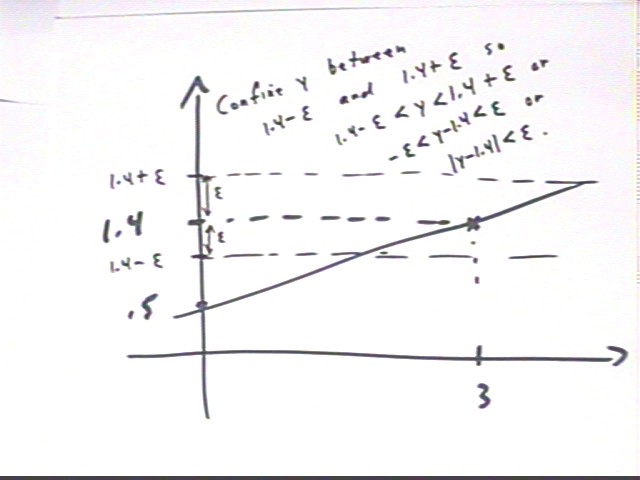 Confine y between
1.4 - ε and 1.4 + ε so
1.4 - ε < y < 1.4 + ε or
-ε < y-1.4 < ε or
|y-1.4| < ε.
1.4 + ε
ε
1.4
ε
1.4 - ε
.5
3